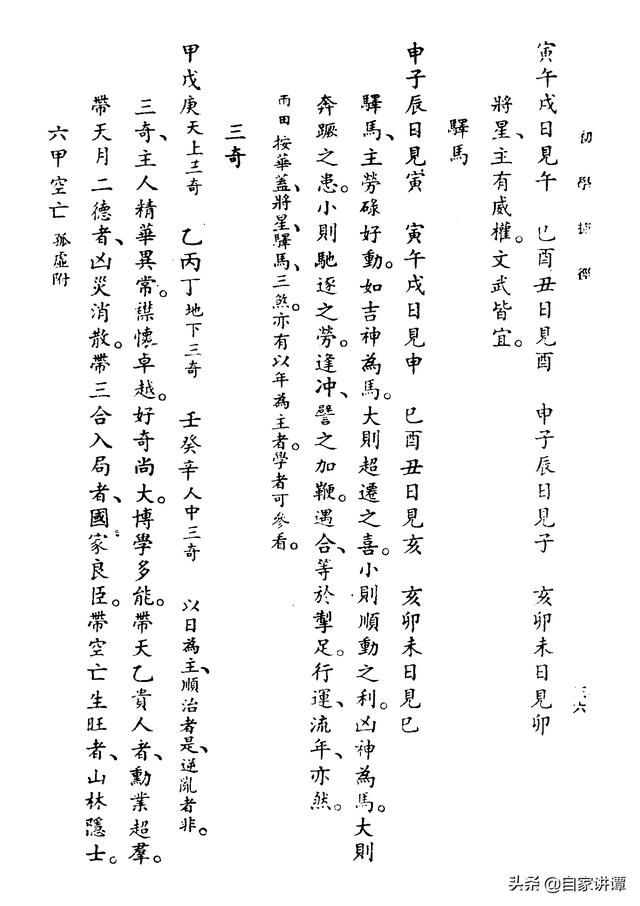 初學捷徑
三六
寅午戌日見午　巳酉丑日見酉　申子辰日見子　亥卯未日見卯
將星、主有威權。文武皆宜。
驛馬
申子辰日見寅　寅午戌日見申　巳酉丑日見亥　亥卯未日見巳
驛馬、主勞碌好動。如吉神為馬。大則超遷之喜。小則順動之利。凶神為馬。大則
奔蹶之患。小則馳逐之勞。逢冲、譬之加鞭。遇合、等於掣足。行運、流年、亦然。
雨田按華蓋、將星、驛馬、三煞。亦有以年為主者。學者可參看。
三奇
甲戊庚天上三奇　乙丙丁地下三奇　壬癸辛人中三奇　以日為主、順治者是、逆亂者非。
三奇、主人精華異常。襟懷卓越。好奇尚大。博學多能。帶天乙貴人者、勳業超羣。
帶天月二德者、凶災消散。帶三合入局者、國家良臣。帶空亡生旺者、山林隱士。
六甲空亡　孤虛附
头条 @自家讲谭